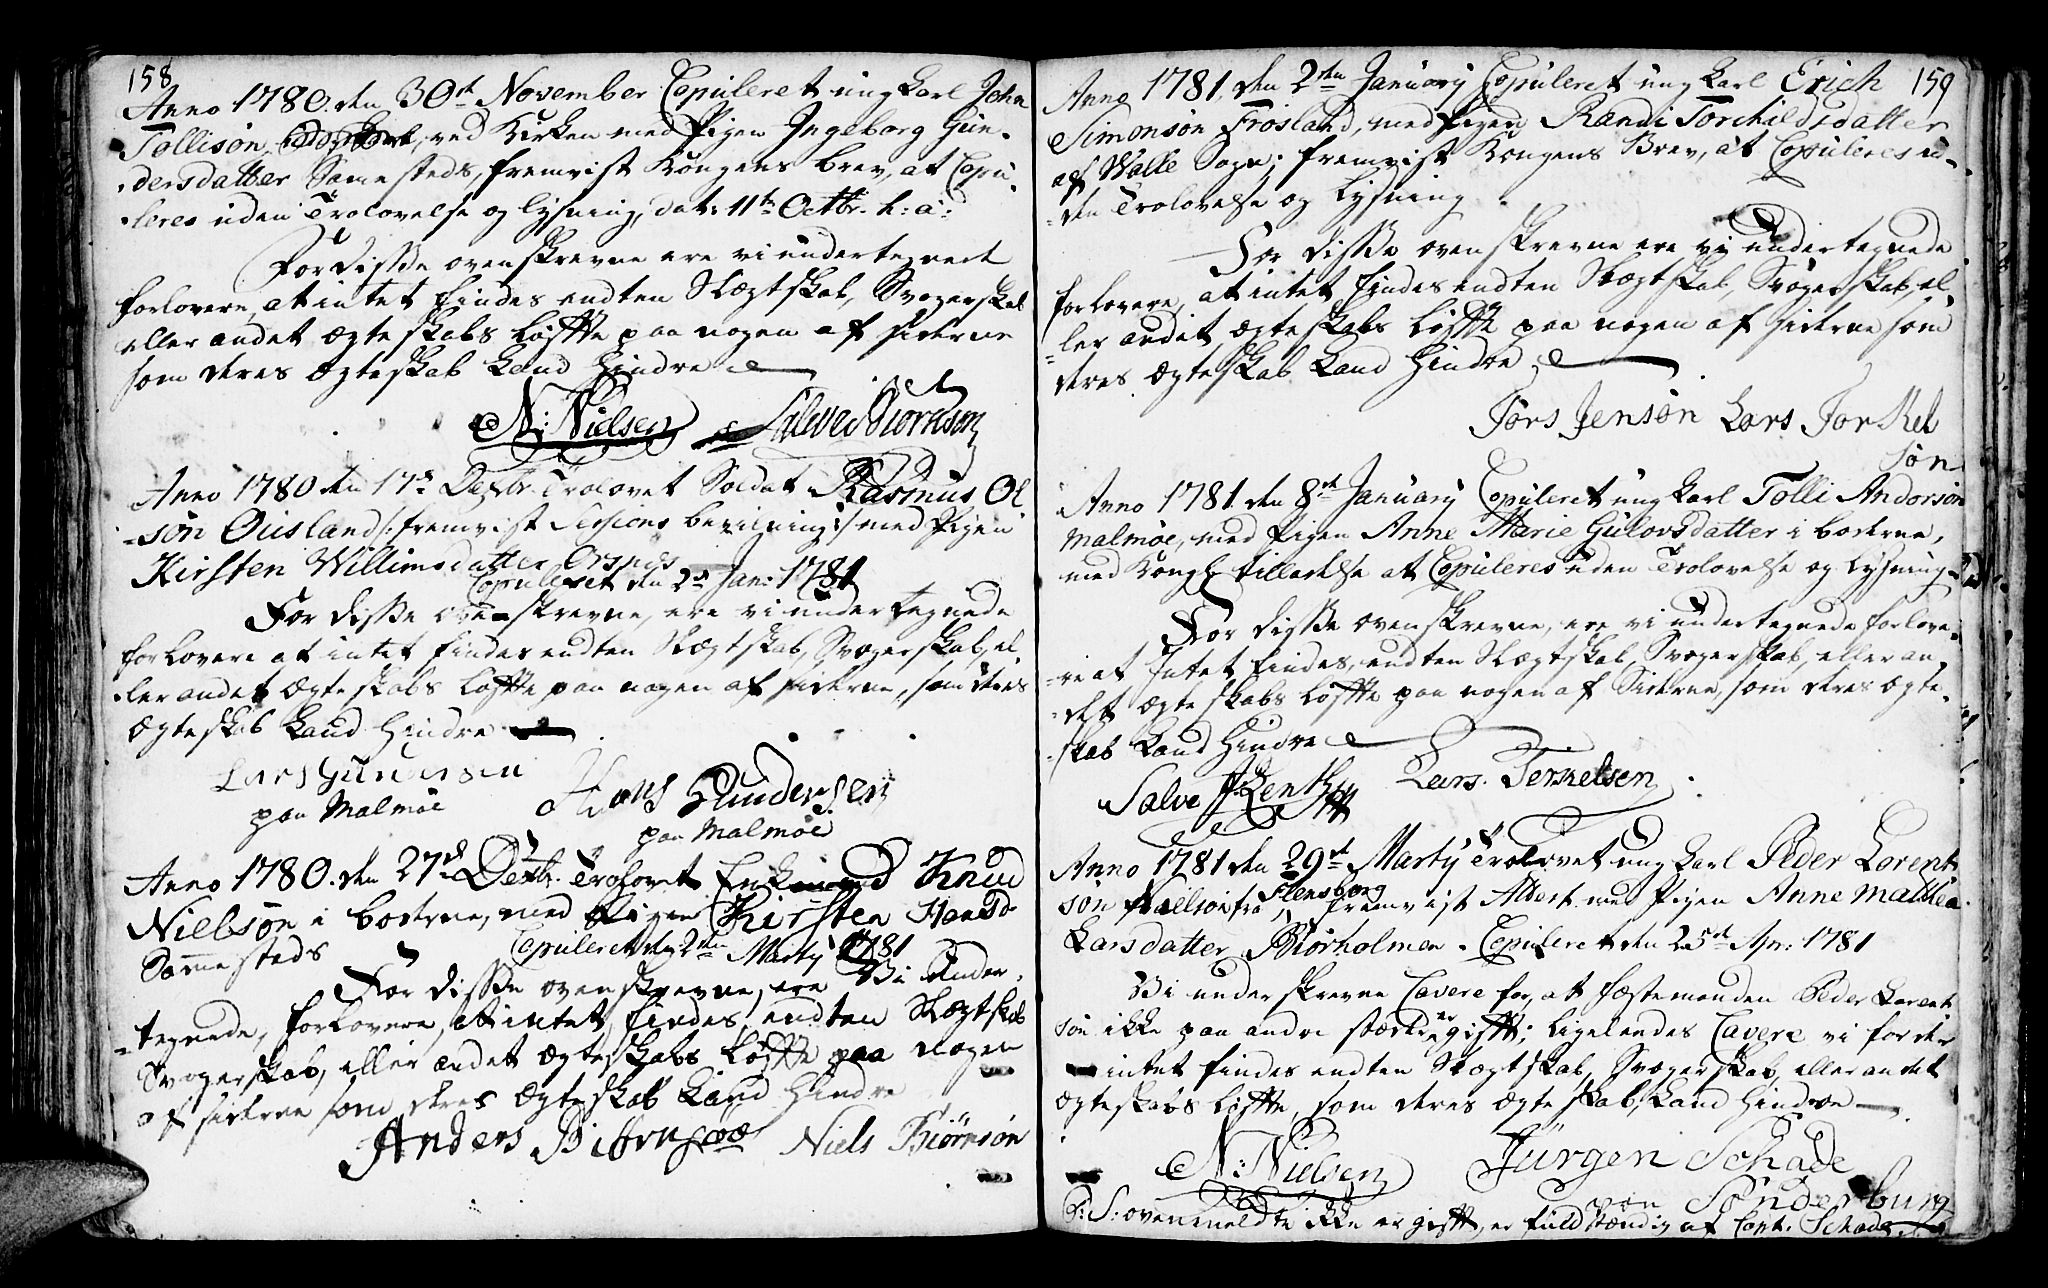 158
Anno 1780. den 30te November Copuleret ung Karl John
Tollisøn, ved Kirken med Pigen Ingeborg Gun-
dersdatter Samesteds, fremvist Kongens brev, at Copu-
leres uden Trolovelse og lysning, dat: 11te Octbr. h: a:
For disse ovenskrevne ere vi undertegnede
forlovere, at intet findes endten Slægtskab, Svogerskab
eller andet Ægteskabs løffte paa nogen af siderne
som deres Ægteskab kand hindre
N: Nielsen Salve Biørnsøn
Anno 1780 den 17de Decbr. Trolovet Soldat Rasmus Ol-
søn Ousland /: fremvist Sessions bevilning :/ med Pigen
Kirsten Willimsdatter Orsnes
Copuleret den 2de Jan: 1781
For disse ovenskrevne, ere vi undertegnede
forlovere at intet findes endten Slægtskab, Svogerskab, el-
ler andet Ægteskabs løffte paa nogen af siderne, som deres
Ægteskab kand hindre
Lars Gundersen Hans Gundersen
paa Malmøe
paa Malmøe
Anno 1780. den 27de Decbr. Trolovet Enkemand Knud
Nielsøn i boderne, med Pigen Kirsten Hansd.
Sammesteds Copuleret den 2den Martij 1781
For disse ovenskrevne, ere Vi under-
tegnede, forlovere, at intet findes, endten Slægtskab
Svogerskab, eller andet Ægteskabs løffte paa nogen
af siderne som deres Ægteskab kand hindre
Anders Biørnsøn Niels Biørnsøn
159
Anno 1781, den 2den January Copuleret ung Karl Erich
Simonsøn Frøsland, med Pigen Randi Torchildsdatter
af Walle Sogn; fremvist Kongens Brev, at Copuleres u-
den Trolovelse og lysning
For disse ovenskrevne ere vi undertegnede
forlovere, at intet findes endten Slægtskab, Svogerskab, el-
ler andet Ægteskabs løffte paa nogen af siderne som
deres Ægteskab kand hindre
Jørs Jensøn Lars Torkel
søn
Anno 1781 den 8de January Copuleret ung Karl Tolli Andersøn
Malmøe, med Pigen Anne Marie Gulovsdatter i boderne,
med Kongl: tilladelse at Copuleres uden Trolovelse og lysning
For disse ovenskrevne, ere vi undertegnede forlove-
re at Intet findes, endten Slægtskab, Svogerskab, eller an-
det Ægteskabs løffte paa nogen af Siderne, som deres Ægte-
skab kand hindre
Salve Lars Terkelsen
Anno 1781 den 29de Martij Trolovet ung Karl Peder Lorents
søn fra Flensborg fremvist Attest med Pigen Anne Mallea
Larsdatter Biørholmen. Copuleret den 25de Apr: 1781
Vi underskrevne Cavere for, at Fæstemanden Peder Lorents
søn ikke paa andre stæder er gifft; ligeledes Cavere vi for der
intet findes endten Slægtskab, Svogerskab, eller andet
Ægteskabs løffte, som deres Ægteskab, kand hindre
N: Nielsen Jürgen Schade
von Sonderburg
P: S: ovenmeldte ikke er gifft, er fuldstændig af Capt. Schade